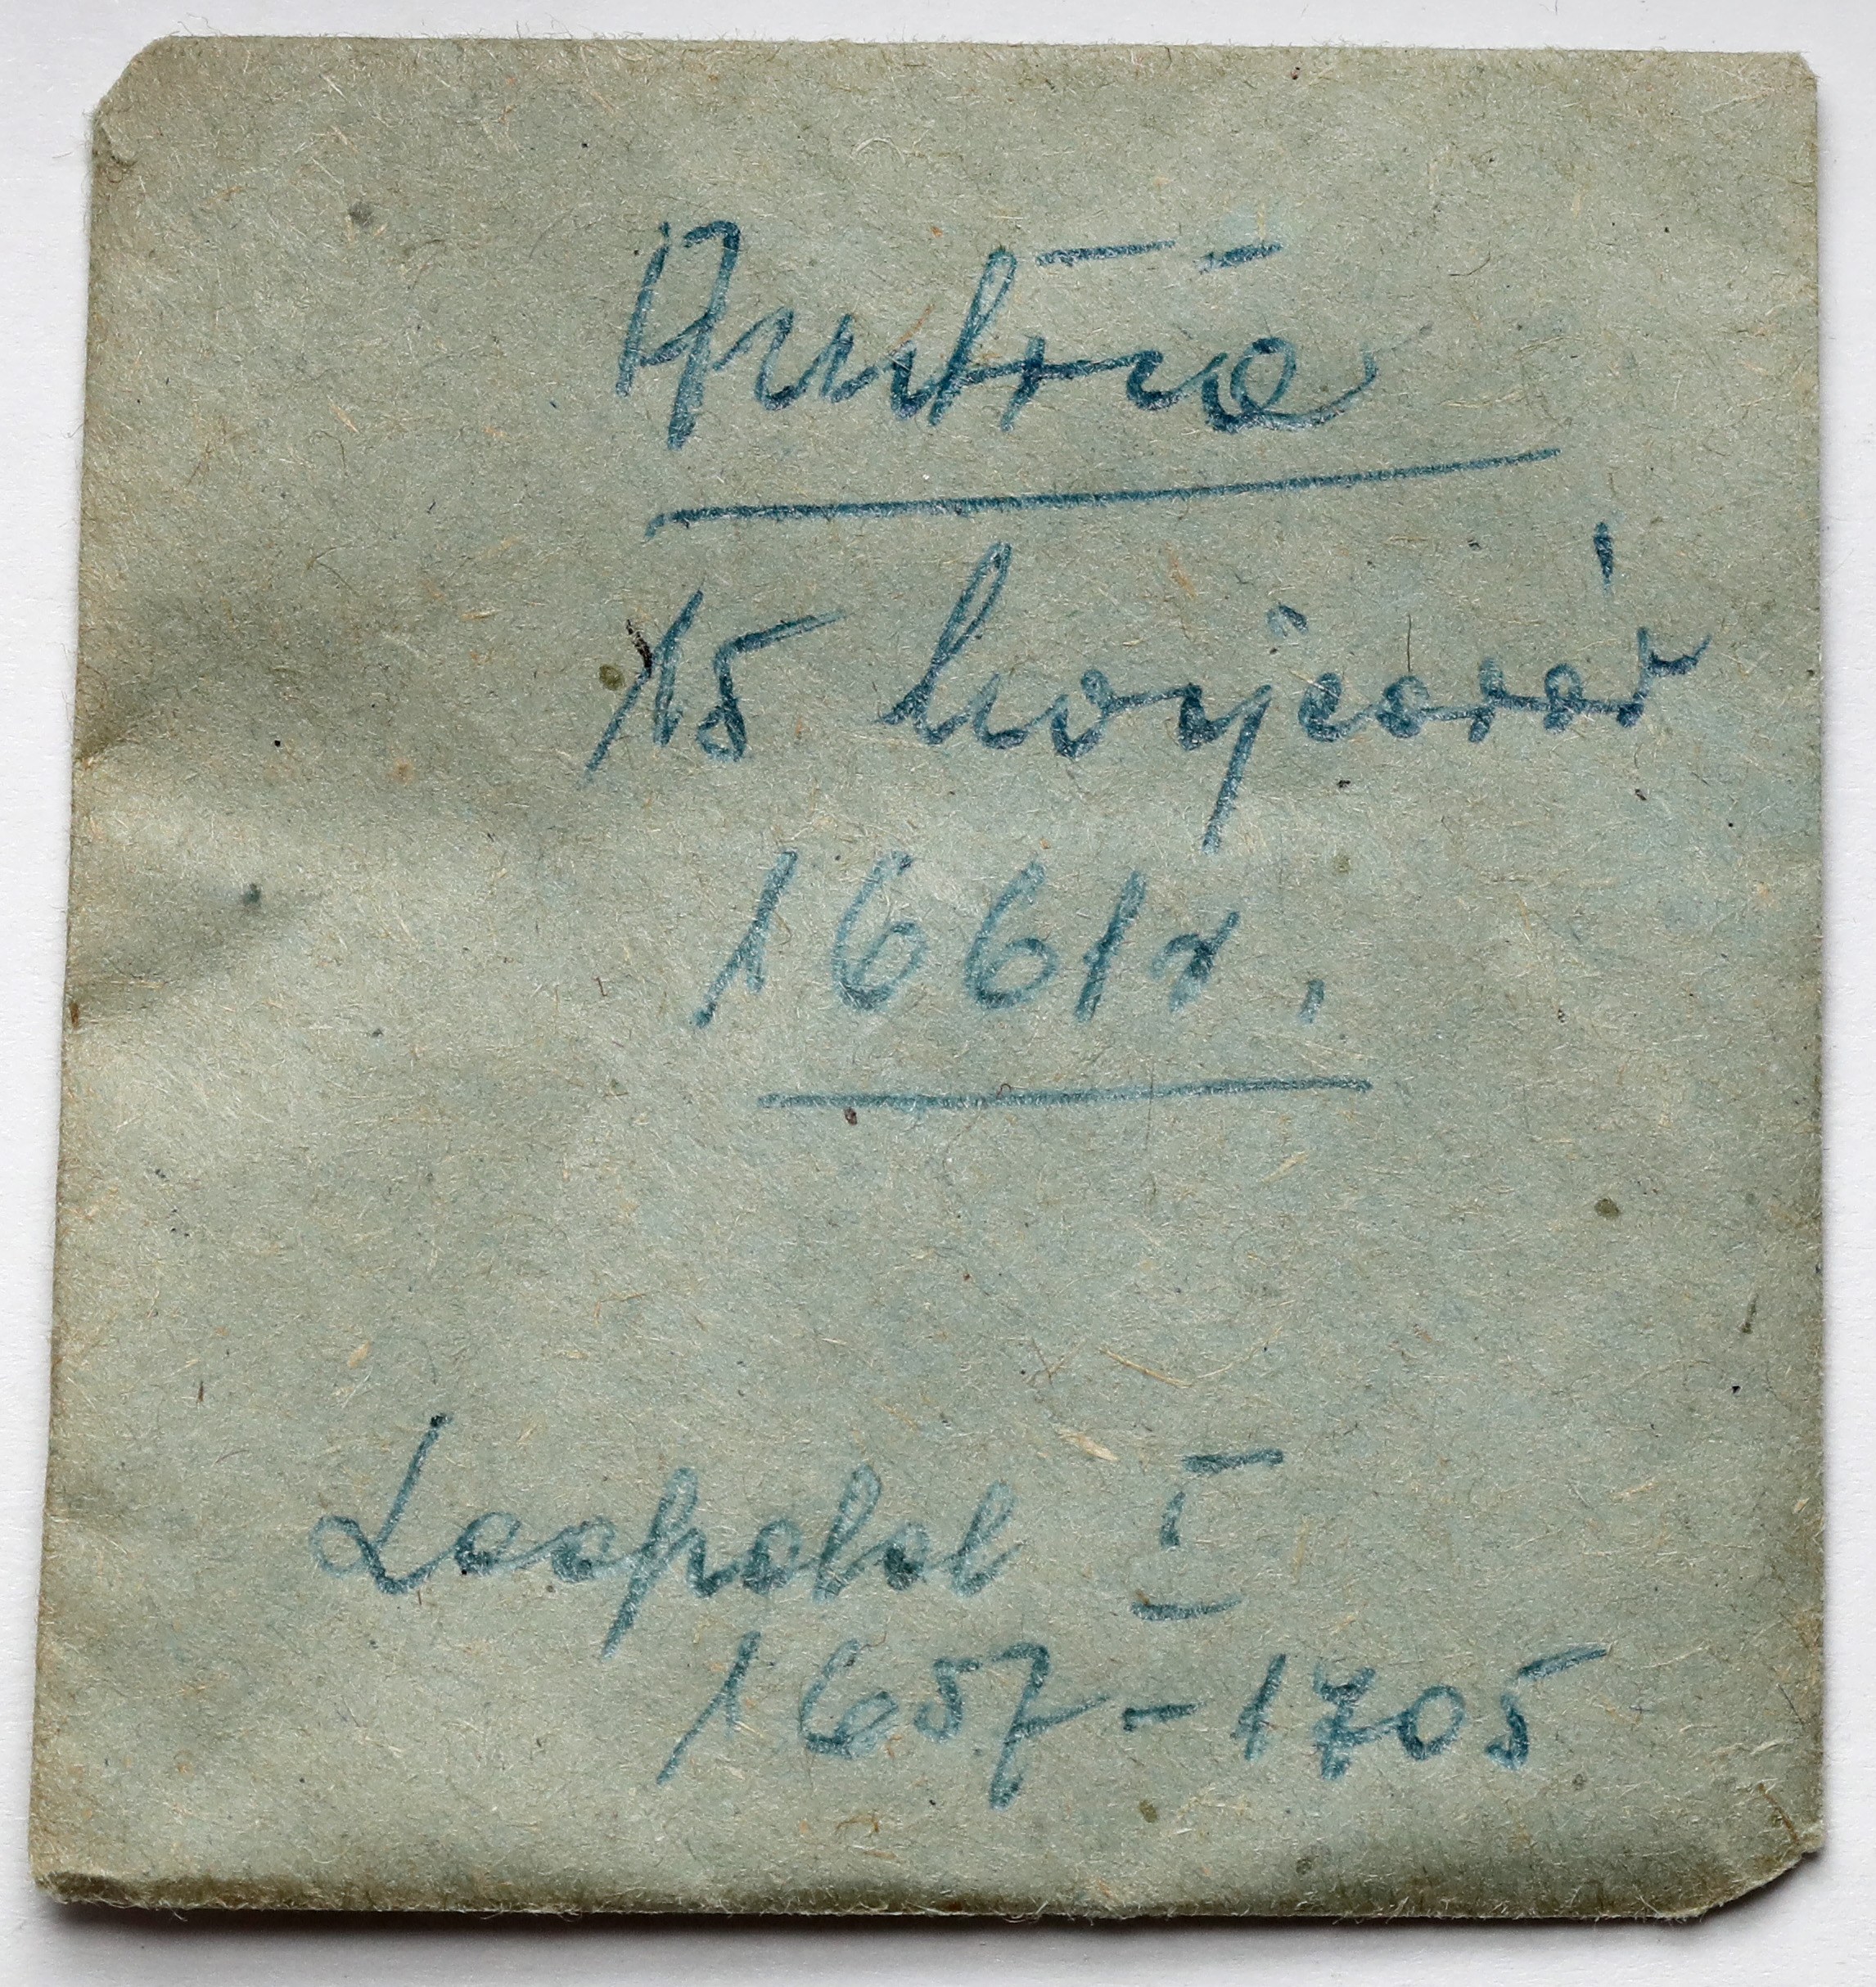 Austria
15 krajcarów
1661 r.
Leopold I
1657-1705